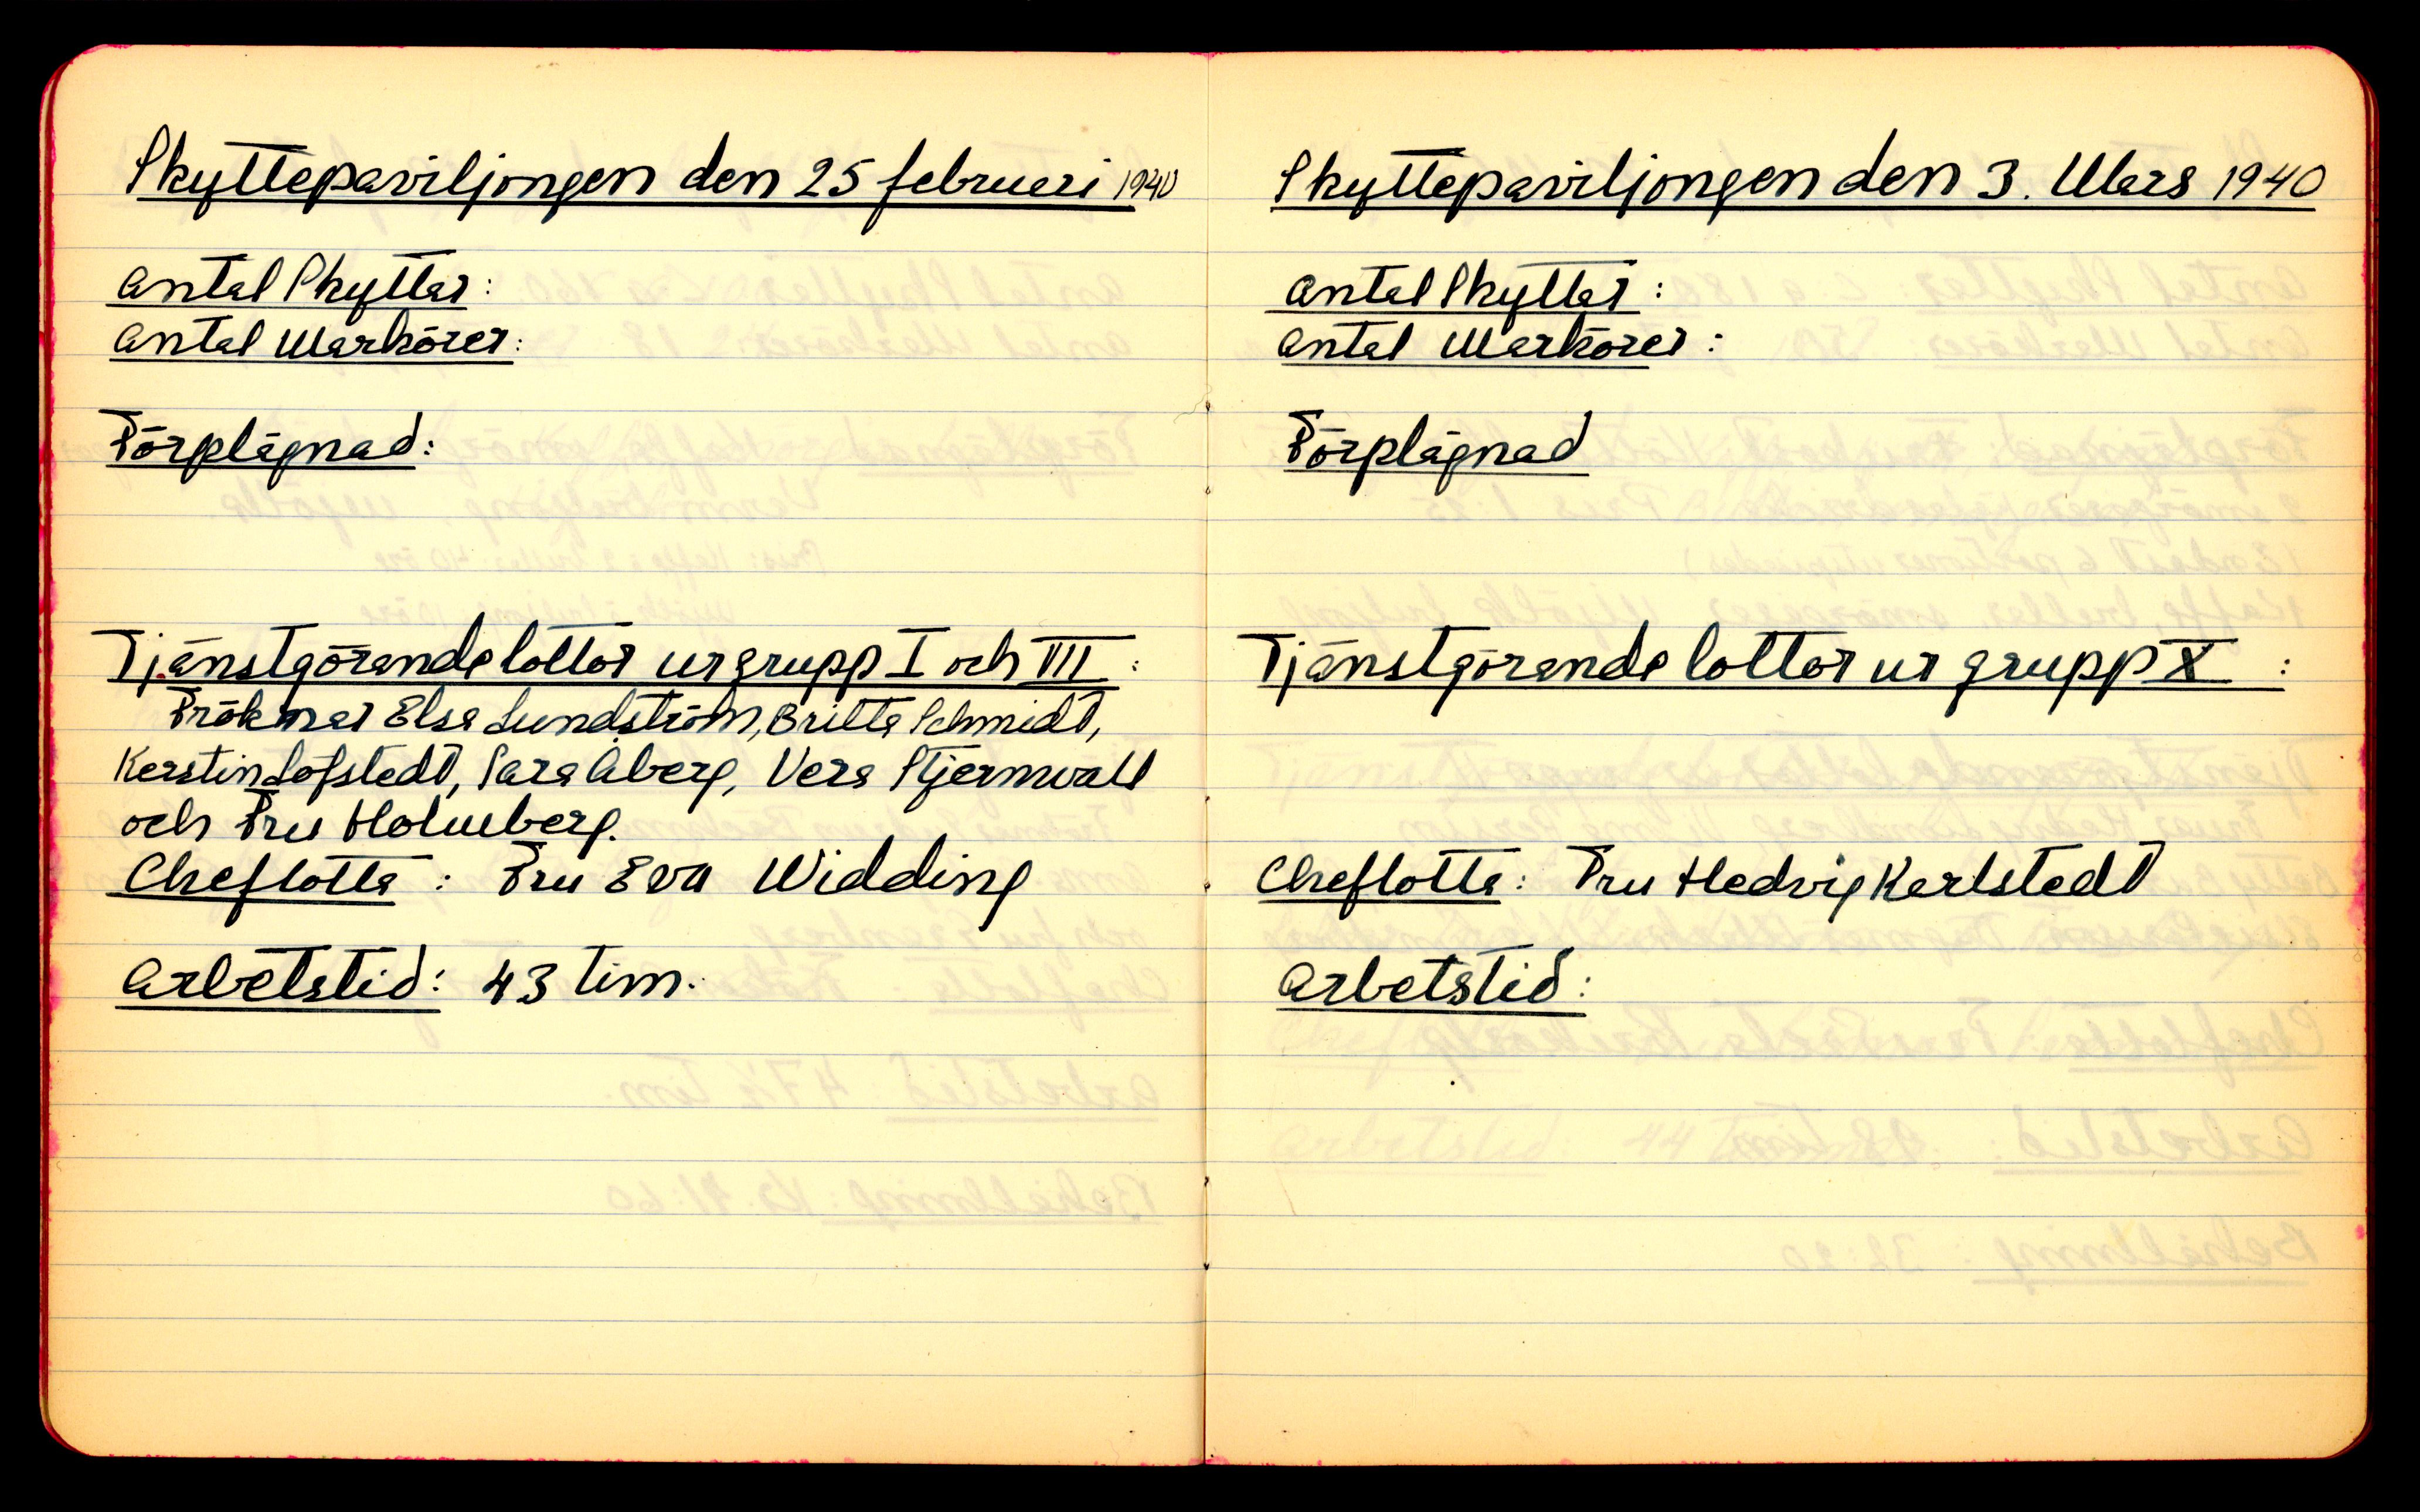 Skyttepaviljongen den 25 februari 1940
Antal Skyttar:
Antal Markörer:
Förplägnad:
Tjänstgörande lottor ur grupp I och VIII:
Fröknar Elsa Lundström, Britta Schmidt,
Kerstin Löfstedt, Sara Åberg, Vera Stjernwall
och Fru Holmberg.
Cheflotta: Fru Eva Widding
Arbetstid: 43 tim.
Skyttepaviljongen den 3. Mars 1940
Antal Skyttar:
Antal Markörer:
Förplägnad
Tjänstgörande lottor ur grupp X:
Cheflotta: Fru Hedvig Karlstedt
Arbetstid: